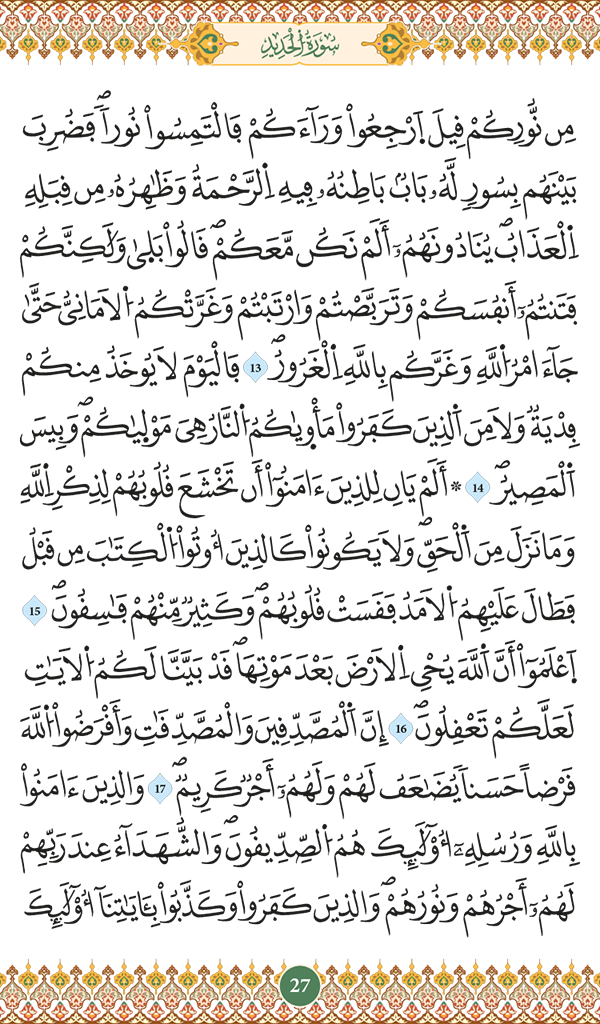 سُورَةُ الْحَدِيدِ
مِن نُّورِكُمْ قِيلَ اَ۪رْجِعُواْ وَرَآءَكُمْ فَالْتَمِسُواْ نُوراٗۖ فَضُرِبَ
بَيْنَهُم بِسُورٖ لَّهُۥ بَابُۢ بَاطِنُهُۥ فِيهِ اِ۬لرَّحْمَةُ وَظَٰهِرُهُۥ مِن قِبَلِهِ
اِ۬لْعَذَابُۖ يُنَادُونَهُمُۥٓ أَلَمْ نَكُن مَّعَكُمْۖ قَالُواْ بَلَىٰ وَلَٰكِنَّكُمْ
فَتَنتُمُۥٓ أَنفُسَكُمْ وَتَرَبَّصْتُمْ وَارْتَبْتُمْ وَغَرَّتْكُمُ اُ۬لَامَانِيُّ حَتَّىٰ
جَآءَ امْرُ اُ۬للَّهِ وَغَرَّكُم بِاللَّهِ اِ۬لْغَرُورُۖ 13 فَالْيَوْمَ لَا يُوخَذُ مِنكُمْ
فِدْيَةٞ وَلَا مِنَ اَ۬لذِينَ كَفَرُواْ مَأْوٜيٰكُمُ اُ۬لنَّارُ هِيَ مَوْلٜيٰكُمْۖ وَبِيسَ
اَ۬لْمَصِيرُۖ 14 ۞ أَلَمْ يَانِ لِلذِينَ ءَامَنُوٓاْ أَن تَخْشَعَ قُلُوبُهُمْ لِذِكْرِ اِ۬للَّهِ
وَمَا نَزَلَ مِنَ اَ۬لْحَقِّۖ وَلَا يَكُونُواْ كَالذِينَ أُوتُواْ اُ۬لْكِتَٰبَ مِن قَبْلُ
فَطَالَ عَلَيْهِمُ اُ۬لَامَدُ فَقَسَتْ قُلُوبُهُمْۖ وَكَثِيرٞ مِّنْهُمْ فَٰسِقُونَۖ 15
اَ۪عْلَمُوٓاْ أَنَّ اَ۬للَّهَ يُحْيِ اِ۬لَارْضَ بَعْدَ مَوْتِهَاۖ قَدْ بَيَّنَّا لَكُمُ اُ۬لَايَٰتِ
لَعَلَّكُمْ تَعْقِلُونَۖ 16 إِنَّ اَ۬لْمُصَّدِّقِينَ وَالْمُصَّدِّقَٰتِ وَأَقْرَضُواْ اُ۬للَّهَ
قَرْضاً حَسَناٗ يُضَٰعَفُ لَهُمْ وَلَهُمُۥٓ أَجْرٞ كَرِيمٞۖ 17 وَالذِينَ ءَامَنُواْ
بِاللَّهِ وَرُسُلِهِۦٓ أُوْلَٰٓئِكَ هُمُ اُ۬لصِّدِّيقُونَۖ وَالشُّهَدَآءُ عِندَ رَبِّهِمْ
لَهُمُۥٓ أَجْرُهُمْ وَنُورُهُمْۖ وَالذِينَ كَفَرُواْ وَكَذَّبُواْ بِـَٔايَٰتِنَآ أُوْلَٰٓئِكَ
27